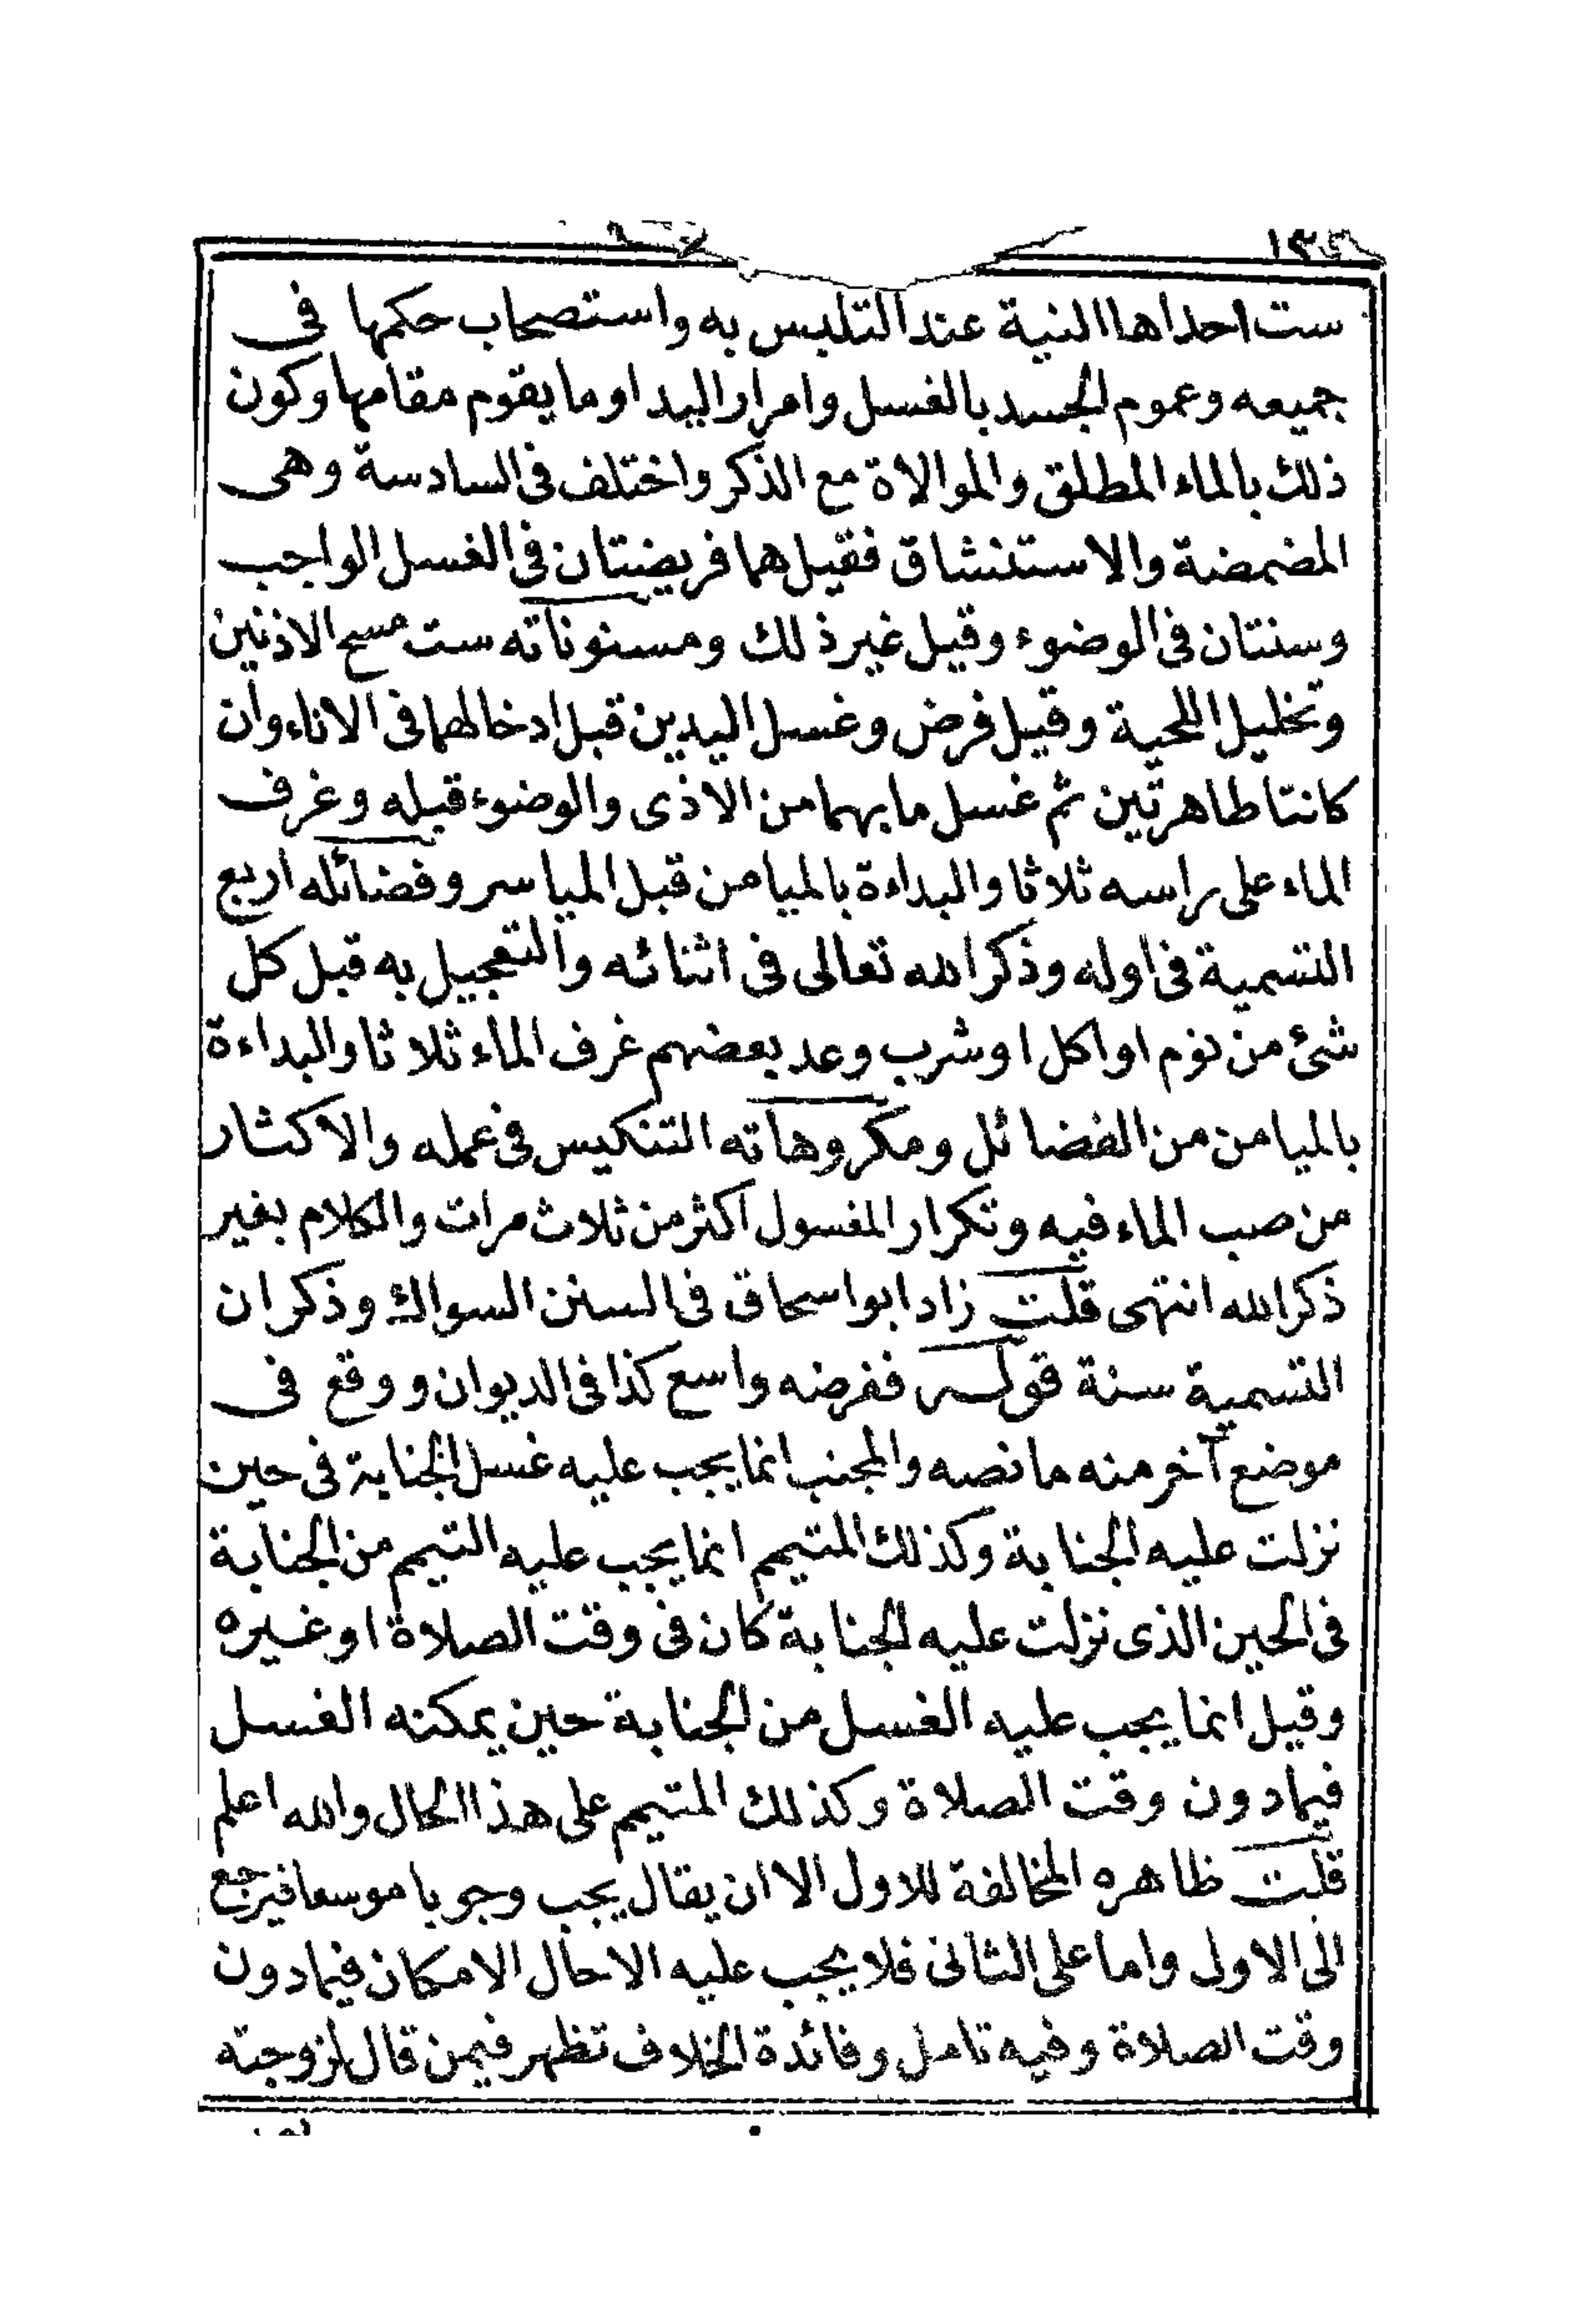 ست احداها النية عند التلبس به واستصحاب حكمها فى
جميعه وعموم الجسد بالغسل وامرار اليد او ما يقوم مقامها وكون
ذلك بالماء المطلق والموالاة مع الذكر واختلف فى السادسة وهى
المضمضة والاستنشاق فقيل هما فريضتان فى الغسل الواجب
وسنتان فى الوضوء وقيل غير ذلك ومسنوناته ست مسح الاذنين
وتخليل اللحية وقيل فرض وغسل اليدين قبل ادخالهما فى الاناء وان
كانتا طاهرتين ثم غسل ما بهما من الاذى والوضوء قبله وغرف
الماء على راسه ثلاثا والبداءة بالميامن قبل المياسر وفضائله اربع
التسمية فى اوله وذكر الله تعالى فى اثنائه والتعجيل به قبل كل
شئ من نوم او اكل او شرب وعد بعضهم غرف الماء ثلاثا والبداءة
بالميامن من الفضائل ومكروهاته التنكيس فى عمله والاكثار
من صب الماء فيه وتكرار المغسول اكثر من ثلاث مرات والكلام بغير
ذكر الله انتهى قلت زاد ابو اسحاق فى السنن السواك وذكر ان
التسمية سنة قوله ففرضه واسع كذا فى الديوان ووقع فى
موضع آخر منه ما نصه والمجنب انما يجب عليه غسل الجنابة فى حين
نزلت عليه الجنابة وكذلك المتيمم انما يجب عليه التيمم من الجنابة
فى الحين الذى نزلت عليه الجنابة كان فى وقت الصلاة او غيره
وقيل انما يجب عليه الغسل من الجنابة حين يمكنه الغسل
فيما دون وقت الصلاة وكذلك المتيمم على هذا الحال والله اعلم
قلت ظاهره المخالفة للاول الا ان يقال يجب وجوبا موسعا فيرجع
الى الاول واما على الثانى فلا يجب عليه الا حال الامكان فيما دون
وقت الصلاة وفيه تامل وفائدة الخلاف تظهر فيمن قال لزوجته